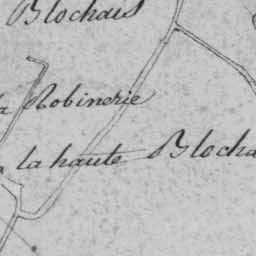 Blochais
la Robinerie
la haute Blocha